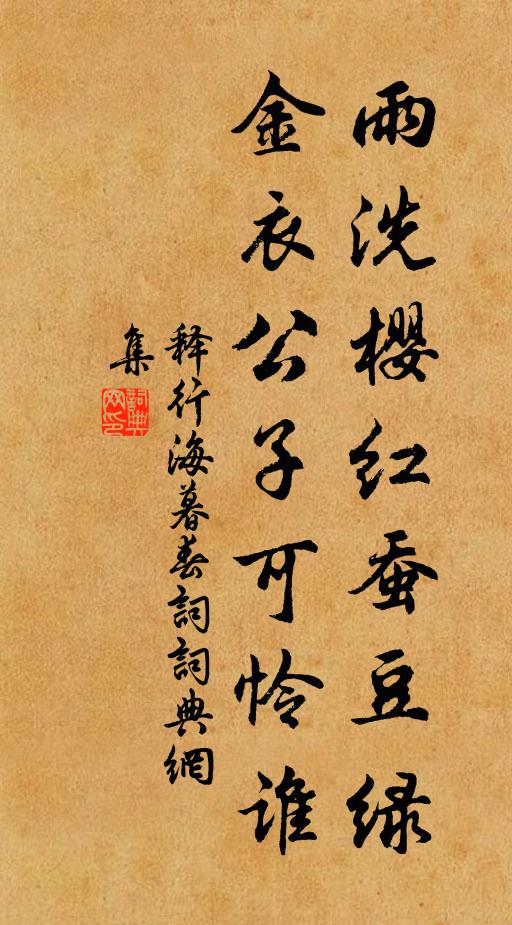 雨洗樱红蚕豆绿
金衣公子可怜谁
释行海暮春詞詞典網
集
詞典
网印